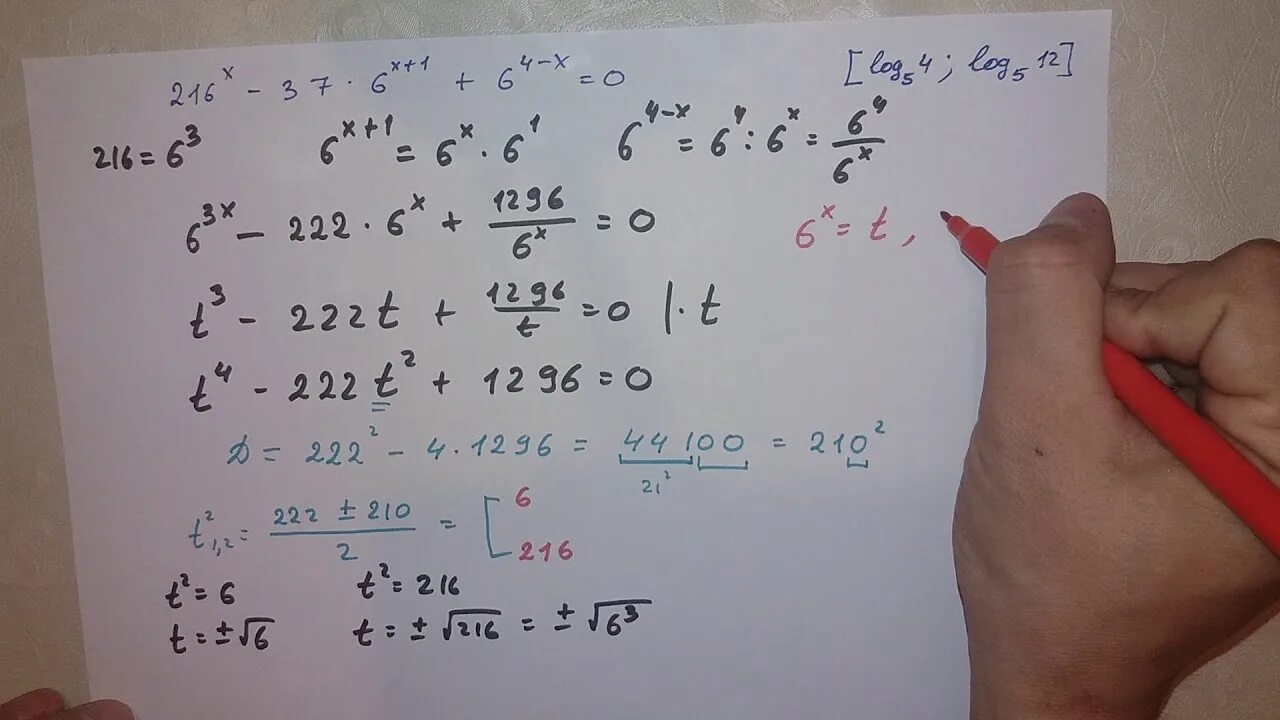 216^x - 37 · 6^(x+1) + 6^(4-x) = 0
[log₅4 ; log₅12]
216 = 6³
6^(x+1) = 6^x · 6¹
6^(4-x) = 6⁴ : 6^x = 6⁴/6^x
6^(3x) - 222 · 6^x + 1296/6^x = 0
6^x = t ,
t³ - 222t + 1296/t = 0 |· t
t⁴ - 222t² + 1296 = 0
D = 222² - 4 · 1296 = 44100 = 210²
21²
t²₁,₂ = (222 ± 210)/2 = [ 6
216
t² = 6
t² = 216
t = ±√6
t = ±√216 = ±√6³